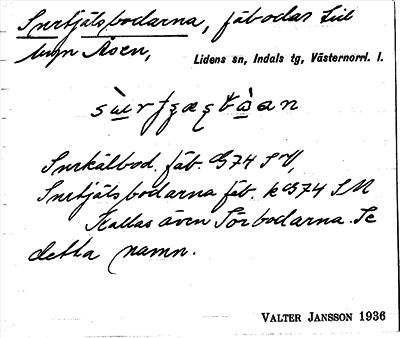 Snrtjälsbodarna, fäbodar till
byn Åsen, Lidens sn, Indals tg, Västernorrl. l.
Snrkälbod. fäb. G74 SV,
Snrtjälsbodarna fäb. k G74 SM
Kallas även Sörbodarna. Se
detta namn.
VALTER JANSSON 1936